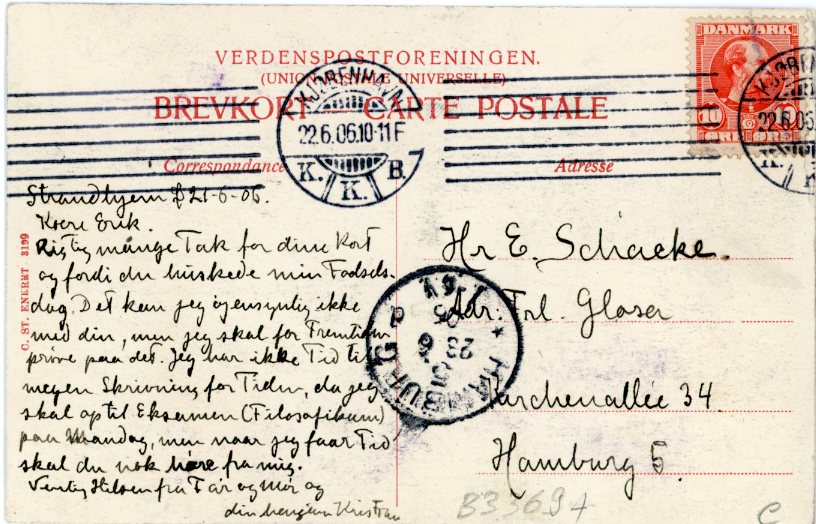 VERDENSPOSTFORENINGEN.
(UNION POSTALE UNIVERSELLE)
BREVKORT – CARTE POSTALE
Correspondance
Adresse
DANMARK
10 10
KJØBENHAVN
22.6.06.10-11F
K. K. B.
KJØBEN
22.6.06.
K.
Strandhjem d 21-6-06.
Kære Erik.
Rigtig mange Tak for dine Kort
og fordi du huskede min Fødsels-
dag. Det kan jeg øjensynlig ikke
med din, men jeg skal for Fremtiden
prøve paa det. Jeg har ikke Tid til
megen Skrivning for Tiden, da jeg
skal op til Eksamen (Filosofikum)
paa Mandag, men naar jeg faar Tid
skal du nok høre fra mig.
Venlig Hilsen fra Far og Mor og
din hengivne Kristian
C. ST. ENERET 3199
Hr E. Schacke.
Adr. Frl. Glaser
Lärchenallée 34.
Hamburg 5.
HAMBURG
5
23 6
06
B33694
C